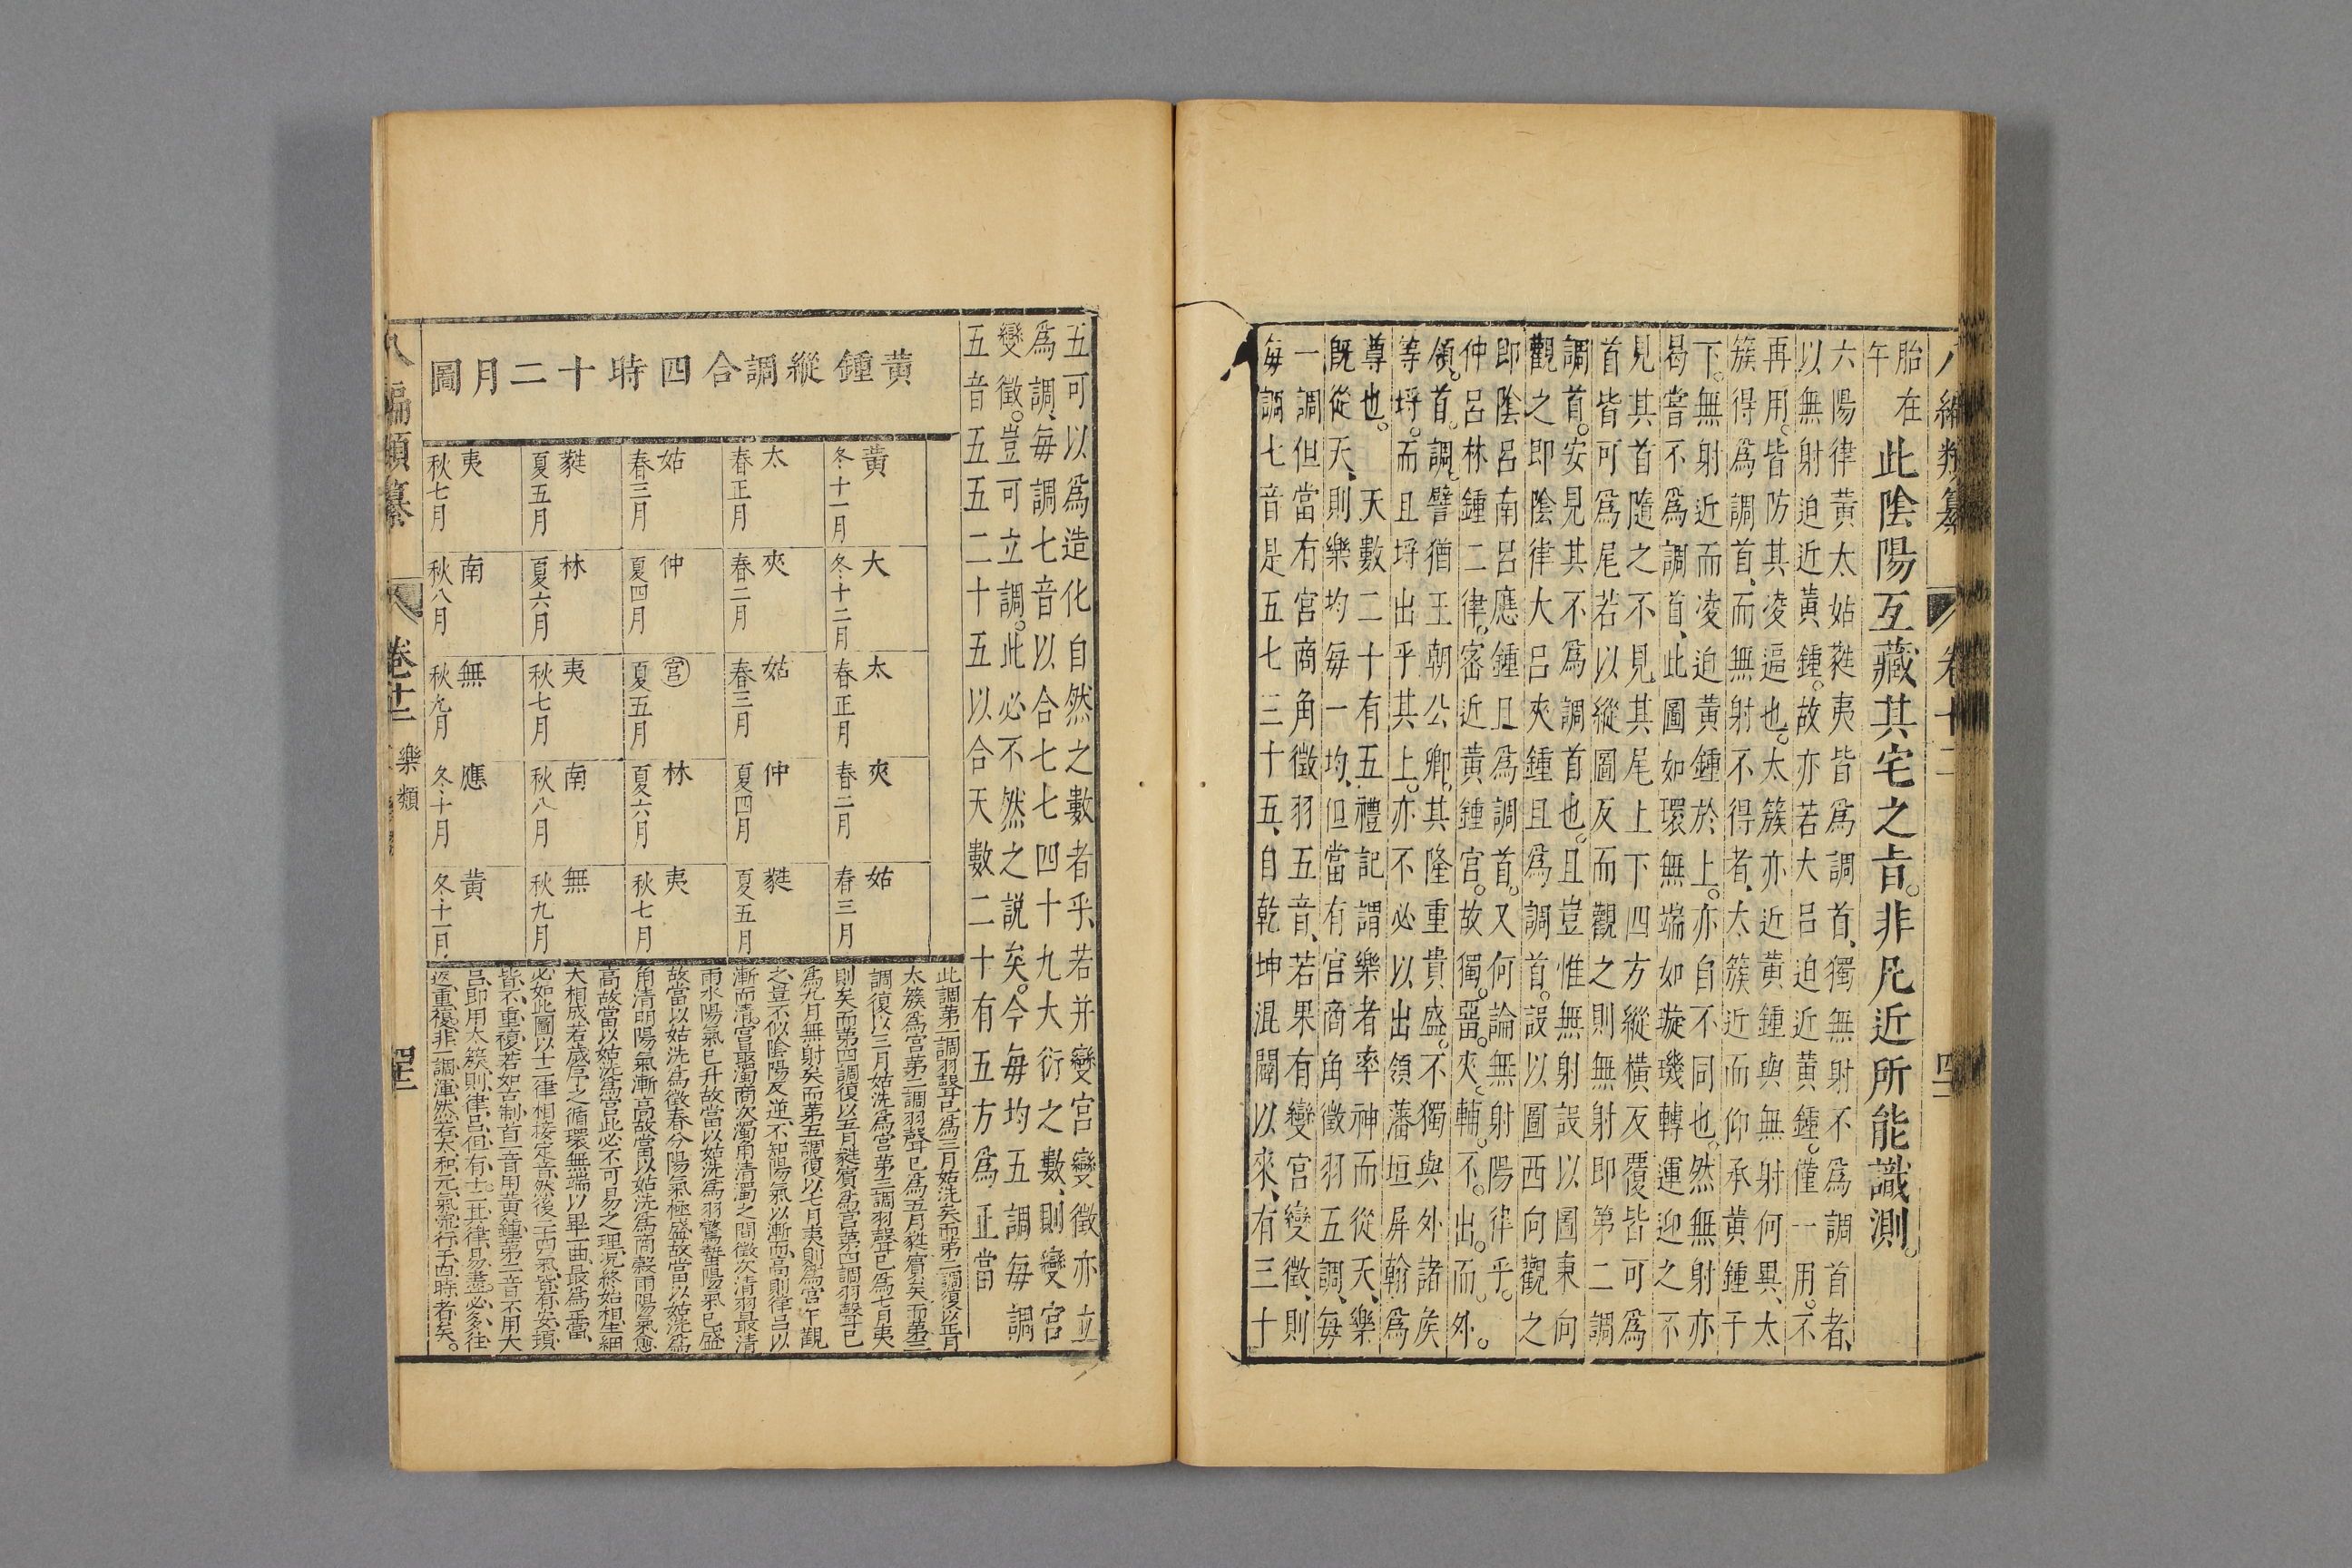 八編類纂 卷十二 四十二
胎在
午
此陰陽互藏其宅之旨。非凡近所能識測。
六陽律黃太姑蕤夷皆爲調首、獨無射不爲調首者、
以無射迫近黃鍾。故亦若大呂迫近黃鍾。僅一用。不
再用。皆防其凌逼也。太簇亦近黃鍾與無射何異、太
簇得爲調首、而無射不得者、太簇近而仰承黃鍾于
下。無射近而凌迫黃鍾於上。亦自不同也。然無射亦
曷嘗不爲調首、此圖如環無端如璇璣轉運迎之不
見其首隨之不見其尾上下四方縱橫反覆皆可爲
首皆可爲尾若以縱圖反而觀之則無射即第二調
調首。安見其不爲調首也。且豈惟無射設以圖東向
觀之即陰律大呂夾鍾且爲調首。設以圖西向觀之
即陰呂南呂應鍾且爲調首。又何論無射陽律乎。
仲呂林鍾二律。密近黃鍾宮。故獨。畱。夾。輔。不。出。而。外。
領。首。調。譬猶王朝公卿。其隆重貴盛。不獨與外諸矦
等埒。而且埒出乎其上。亦不必以出領藩垣屏翰爲
尊也。 天數二十有五禮記謂樂者率神而從天、樂
既從天、則樂均每一均、但當有宮商角徵羽五調、每
一調但當有宮商角徵羽五音、若果有變宮變徵、則
每調七音是五七三十五、自乾坤混闢以來、有三十
五可以爲造化自然之數者乎、若并變宮變徵亦立
爲調、每調七音以合七七四十九大衍之數、則變宮
變徵。豈可立調。此必不然之説矣。今每均五調每調
五音五五二十五以合天數二十有五方爲正當
黃鍾縱調合四時十二月圖
黃 大 太 夾 姑
冬十一月 冬十二月 春正月 春二月 春三月
太 夾 姑 仲 蕤
春正月 春二月 春三月 夏四月 夏五月
姑 仲 宮 林 夷
春三月 夏四月 夏五月 夏六月 秋七月
蕤 林 夷 南 無
夏五月 夏六月 秋七月 秋八月 秋九月
夷 南 無 應 黃
秋七月 秋八月 秋九月 冬十月 冬十一月
此調第一調羽聲已爲三月姑洗矣而第二調復以正月
太簇爲宮第二調羽聲已爲五月蕤賓矣而第三
調復以三月姑洗爲宮第三調羽聲已爲七月夷
則矣而第四調復以五月蕤賓爲宮第四調羽聲已
爲九月無射矣而第五調復以七月夷則爲宮乍觀
之豈不似陰陽反逆不知陽氣以漸而高則律呂以
漸而清宮最濁商次濁角清濁之間徵次清羽最清
雨水陽氣已升故當以姑洗爲羽驚蟄陽氣已盛
故當以姑洗爲徵春分陽氣極盛故當以姑洗爲
角清明陽氣漸高故當以姑洗爲商穀雨陽氣愈
高故當以姑洗爲宮此必不可易之理況終始相生細
大相成若歲序之循環無端以畢一曲最爲正當、
必如此圖以十二律相接定音然後二十四氣皆有安頓
皆不重複若如古制首一音用黃鍾第二音不用大
呂即用太簇則律呂但有十二其律易盡必多往
返重複非一調渾然若太和元氣流行于四時者矣。
八編類纂 卷十二 樂類 四十三